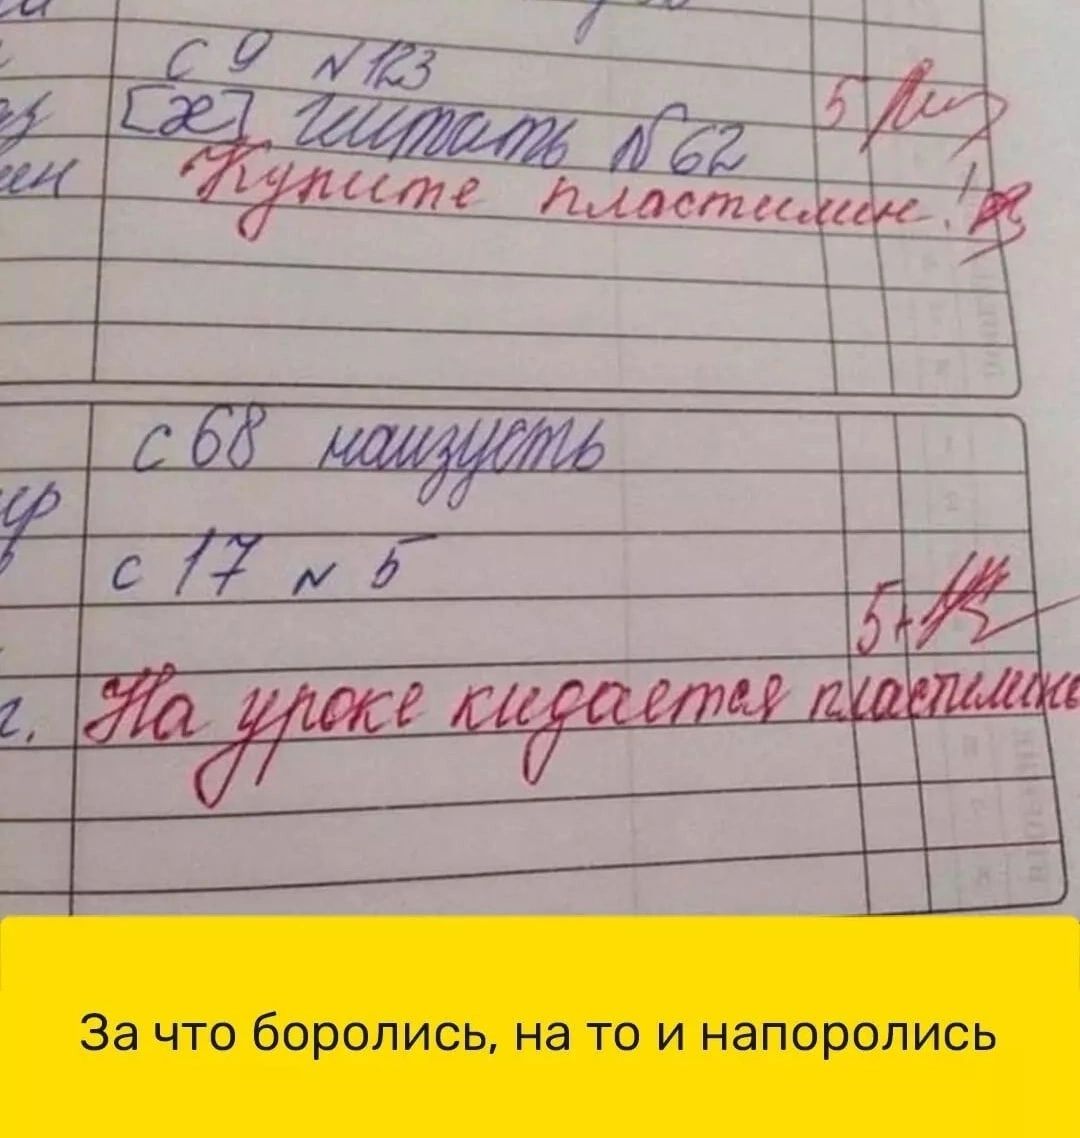 с 9 N 123
[æ] читать N 62 5
Купите пластилин!
с 68 наизусть
с 17 N 5
5+
г. На уроке кидается пластилино
За что боролись, на то и напоролись